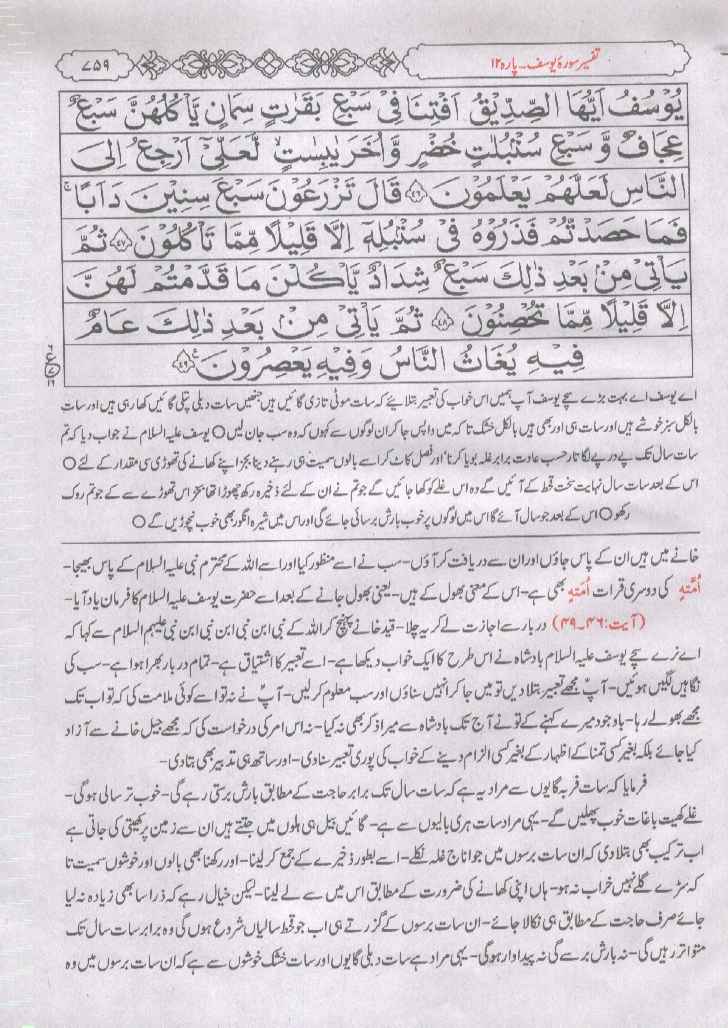 تفسیر سورۂ یوسف۔ پارہ ۱۲
۷۵۹
يُوْسُفُ اَيُّهَا الصِّدِّيْقُ اَفْتِنَا فِيْ سَبْعِ بَقَرٰتٍ سِمَانٍ يَّاْكُلُهُنَّ سَبْعٌ
عِجَافٌ وَّ سَبْعِ سُنْۢبُلٰتٍ خُضْرٍ وَّاُخَرَ يٰبِسٰتٍ ۙ لَّعَلِّيْۤ اَرْجِعُ اِلَى
النَّاسِ لَعَلَّهُمْ يَعْلَمُوْنَ ﴿۴۶﴾ قَالَ تَزْرَعُوْنَ سَبْعَ سِنِيْنَ دَاَبًا ۚ
فَمَا حَصَدْتُّمْ فَذَرُوْهُ فِيْ سُنْۢبُلِهٖۤ اِلَّا قَلِيْلًا مِّمَّا تَاْكُلُوْنَ ﴿۴۷﴾ ثُمَّ
يَاْتِيْ مِنْۢ بَعْدِ ذٰلِكَ سَبْعٌ شِدَادٌ يَّاْكُلْنَ مَا قَدَّمْتُمْ لَهُنَّ
اِلَّا قَلِيْلًا مِّمَّا تُحْصِنُوْنَ ﴿۴۸﴾ ثُمَّ يَاْتِيْ مِنْۢ بَعْدِ ذٰلِكَ عَامٌ
فِيْهِ يُغَاثُ النَّاسُ وَفِيْهِ يَعْصِرُوْنَ ﴿۴۹﴾
اے یوسف اے بہت بڑے سچے یوسف آپ ہمیں اس خواب کی تعبیر بتلایئے کہ سات موٹی تازی گائیں ہیں جنہیں سات دبلی پتلی گائیں کھا رہی ہیں اور سات
بالکل سبز خوشے ہیں اور سات ہی اور بھی ہیں بالکل خشک تاکہ میں واپس جا کر ان لوگوں سے کہوں کہ وہ سب جان لیں ○ یوسف علیہ السلام نے جواب دیا کہ تم
سات سال تک پے در پے لگاتار حسب عادت برابر غلہ بویا کرنا' اور فصل کاٹ کر اسے بالوں سمیت ہی رہنے دینا بجز اپنے کھانے کی تھوڑی سی مقدار کے لئے ○
اس کے بعد سات سال نہایت سخت قحط کے آئیں گے وہ اس غلے کو کھا جائیں گے جو تم نے ان کے لئے ذخیرہ رکھ چھوڑا تھا بجز اس تھوڑے سے کے جو تم روک
رکھو ○ اس کے بعد جو سال آئے گا اس میں لوگوں پر خوب بارش برسائی جائے گی اور اس میں شیرہ انگور بھی خوب نچوڑیں گے ○
خانے میں ہیں ان کے پاس جاؤں اور ان سے دریافت کر آؤں۔ سب نے اسے منظور کیا اور اسے اللہ کے محترم نبی علیہ السلام کے پاس بھیجا۔
اُمَّةٍ کی دوسری قرات اُمَّتهٍ بھی ہے۔ اس کے معنی بھول کے ہیں۔ یعنی بھول جانے کے بعد اسے حضرت یوسف علیہ السلام کا فرمان یاد آیا۔
(آیت:۴۶۔۴۹) دربار سے اجازت لے کر یہ چلا۔ قید خانے پہنچ کر اللہ کے نبی ابن نبی ابن نبی ابن نبی علیہم السلام سے کہا کہ
اے نرے سچے یوسف علیہ السلام بادشاہ نے اس طرح کا ایک خواب دیکھا ہے۔ اسے تعبیر کا اشتیاق ہے۔ تمام دربار بھرا ہوا ہے۔ سب کی
نگاہیں لگیں ہوئیں۔ آپ مجھے تعبیر بتلا دیں تو میں جا کر انہیں سناؤں اور سب معلوم کر لیں۔ آپؑ نے نہ تو اسے کوئی ملامت کی کہ تو اب تک
مجھے بھولے رہا۔ باوجود میرے کہنے کے تو نے آج تک بادشاہ سے میرا ذکر بھی نہ کیا۔ نہ اس امر کی درخواست کی کہ مجھے جیل خانے سے آزاد
کیا جائے بلکہ بغیر کسی تمنا کے اظہار کے بغیر کسی الزام دینے کے خواب کی پوری تعبیر سنا دی۔ اور ساتھ ہی تدبیر بھی بتا دی۔
فرمایا کہ سات فربہ گایوں سے مراد یہ ہے کہ سات سال تک برابر حاجت کے مطابق بارش برستی رہے گی۔ خوب ترسالی ہو گی۔
غلے کھیت باغات خوب پھلیں گے۔ یہی مراد سات ہری بالیوں سے ہے۔ گائیں بیل ہی ہلوں میں جتتے ہیں ان سے زمین پر کھیتی کی جاتی ہے
اب ترکیب بھی بتلا دی کہ ان سات برسوں میں جو اناج غلہ نکلے۔ اسے بطور ذخیرے کے جمع کر لینا۔ اور رکھنا بھی بالوں اور خوشوں سمیت تا
کہ سڑے گلے نہیں خراب نہ ہو۔ ہاں اپنی کھانے کی ضرورت کے مطابق اس میں سے لے لینا۔ لیکن خیال رہے کہ ذرا سا بھی زیادہ نہ لیا
جائے صرف حاجت کے مطابق ہی نکالا جائے۔ ان سات برسوں کے گزرتے ہی اب جو قحط سالیاں شروع ہوں گی وہ برابر سات سال تک
متواتر رہیں گی۔ نہ بارش برسے گی نہ پیداوار ہو گی۔ یہی مراد ہے سات دبلی گایوں اور سات خشک خوشوں سے ہے کہ ان سات برسوں میں وہ